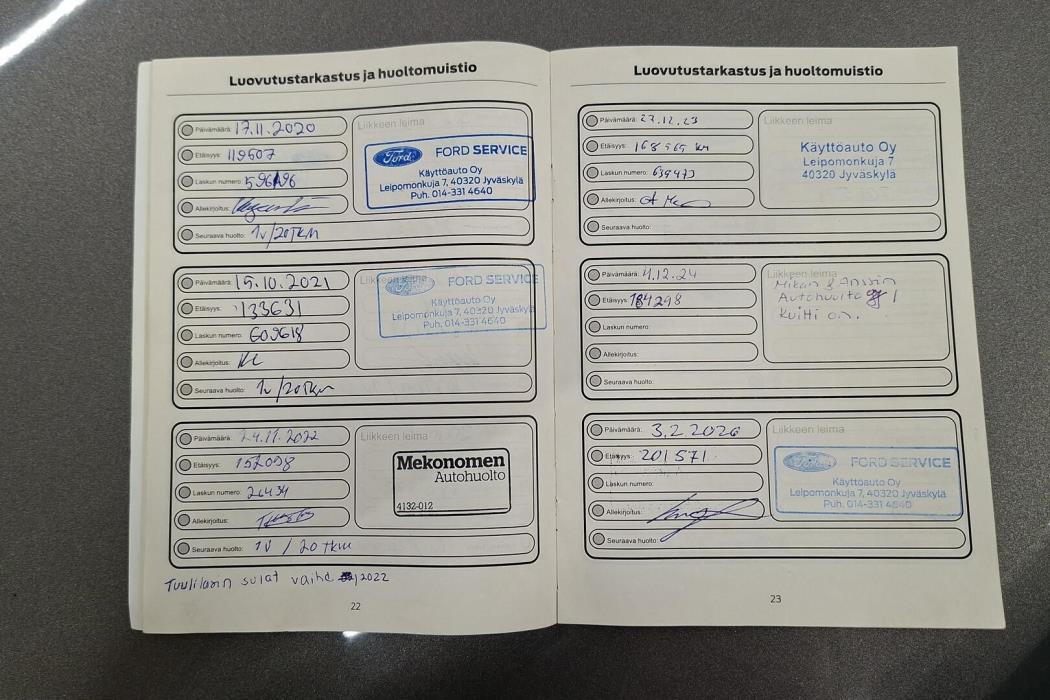 Luovutustarkastus ja huoltomuistio
Päivämäärä: 17.11.2020
Etäisyys: 119507
Laskun numero: 596196
Allekirjoitus:
Seuraava huolto: 1v/20TKM
Liikkeen leima
Ford FORD SERVICE
Käyttöauto Oy
Leipomonkuja 7, 40320 Jyväskylä
Puh. 014-331 4640
Päivämäärä: 15.10.2021
Etäisyys: 133631
Laskun numero: 609618
Allekirjoitus:
Seuraava huolto: 1v/20TKM
Liikkeen leima
Ford FORD SERVICE
Käyttöauto Oy
Leipomonkuja 7, 40320 Jyväskylä
Puh. 014-331 4640
Päivämäärä: 24.11.2022
Etäisyys: 152098
Laskun numero: 26434
Allekirjoitus:
Seuraava huolto: 1V / 20 TKM
Liikkeen leima
Mekonomen
Autohuolto
4132-012
Tuulilasin sulat vaihd 2022
22
Luovutustarkastus ja huoltomuistio
Päivämäärä: 27.12.23
Etäisyys: 168565 km
Laskun numero: 639473
Allekirjoitus:
Seuraava huolto:
Liikkeen leima
Käyttöauto Oy
Leipomonkuja 7
40320 Jyväskylä
Päivämäärä: 4.12.24
Etäisyys: 184298
Laskun numero:
Allekirjoitus:
Seuraava huolto:
Liikkeen leima
Mikan & Anssin
Autohuolto
Kuitti on.
Päivämäärä: 3.2.2026
Etäisyys: 201571
Laskun numero:
Allekirjoitus:
Seuraava huolto:
Liikkeen leima
Ford FORD SERVICE
Käyttöauto Oy
Leipomonkuja 7, 40320 Jyväskylä
Puh. 014-331 4640
23